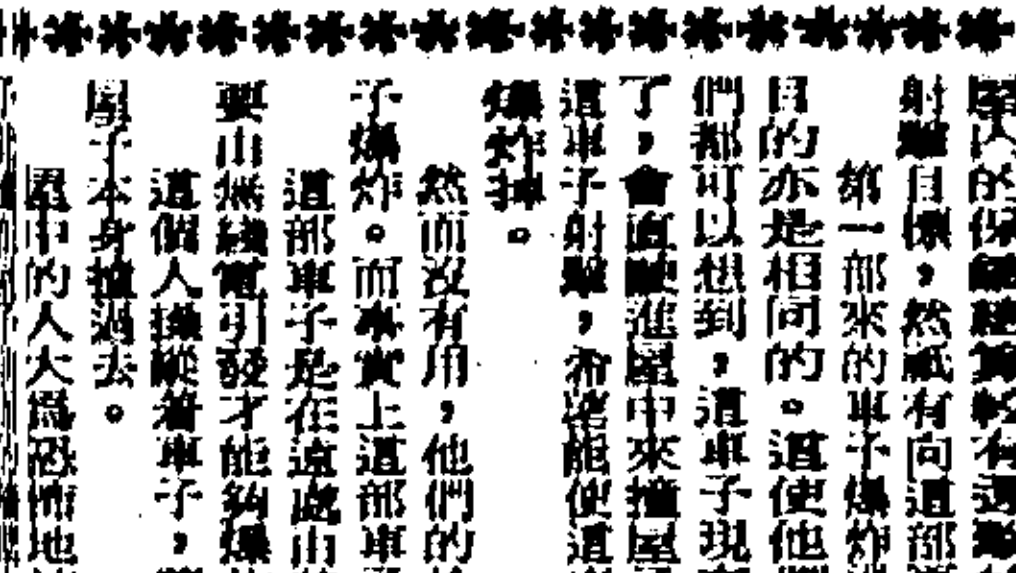 的保有
射擊目標，然祇有向這部
第一部來的車子爆炸
目的亦是相同的。這使他
們都可以想到，這車子現
了，會直駛進屋中來撞屋
這車子射擊，希望能使這
爆炸掉。
然而沒有用，他們的
子爆炸。而事實上這部車
這部車子是在遠處由
要由無綫電引發才能夠爆
這假人操縱着車子，
屋子本身撞過去。
屋中的人大爲恐懼地